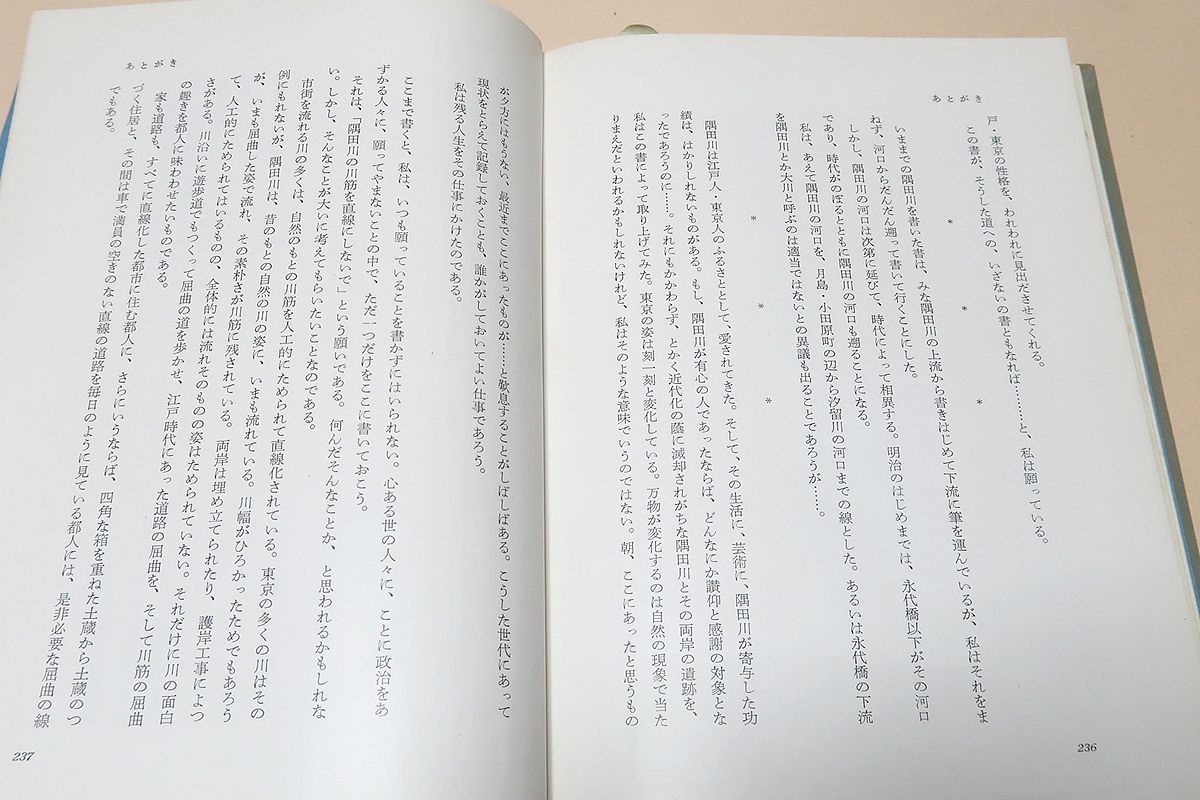 あとがき
戸・東京の性格を、われわれに見出ださせてくれる。
この書が、そうした道への、いざないの書ともなれば………と、私は願っている。
＊　＊　＊
いままでの隅田川を書いた書は、みな隅田川の上流から書きはじめて下流に筆を運んでいるが、私はそれをま
ねず、河口からだんだん遡って書いて行くことにした。
しかし、隅田川の河口は次第に延びて、時代によって相異する。明治のはじめまでは、永代橋以下がその河口
であり、時代がのぼるとともに隅田川の河口も遡ることになる。
私は、あえて隅田川の河口を、月島・小田原町の辺から汐留川の河口までの線とした。あるいは永代橋の下流
を隅田川とか大川と呼ぶのは適当ではないとの異議も出ることであろうが……。
＊　＊　＊
隅田川は江戸人・東京人のふるさととして、愛されてきた。そして、その生活に、芸術に、隅田川が寄与した功
績は、はかりしれないものがある。もし、隅田川が有心の人であったならば、どんなにか讃仰と感謝の対象とな
ったであろうのに……。それにもかかわらず、とかく近代化の蔭に滅却されがちな隅田川とその両岸の遺跡を、
私はこの書によって取り上げてみた。東京の姿は刻一刻と変化している。万物が変化するのは自然の現象で当た
りまえだといわれるかもしれないけれど、私はそのような意味でいうのではない。朝、ここにあったと思うもの
236
あとがき
が夕方にはもうない、最近までここにあったものが……と歎息することがしばしばある。こうした世代にあって
現状をとらえて記録しておくことも、誰かがしておいてよい仕事であろう。
私は残る人生をその仕事にかけたのである。
ここまで書くと、私は、いつも願っていることを書かずにはいられない。心ある世の人々に、ことに政治をあ
ずかる人々に、願ってやまないことの中で、ただ一つだけをここに書いておこう。
それは、「隅田川の川筋を直線にしないで」という願いである。何んだそんなことか、と思われるかもしれな
い。しかし、そんなことが大いに考えてもらいたいことなのである。
市街を流れる川の多くは、自然のもとの川筋を人工的にためられて直線化されている。東京の多くの川はその
例にもれないが、隅田川は、昔のもとの自然の川の姿に、いまも流れている。川幅がひろかったためでもあろう
が、いまも屈曲した姿で流れ、その素朴さが川筋に残されている。両岸は埋め立てられたり、護岸工事によっ
て、人工的にためられてはいるものの、全体的には流れそのものの姿はためられていない。それだけに川の面白
さがある。川沿いに遊歩道でもつくって屈曲の道を歩かせ、江戸時代にあった道路の屈曲を、そして川筋の屈曲
の趣きを都人に味わわせたいものである。
家も道路も、すべてに直線化した都市に住む都人に、さらにいうならば、四角な箱を重ねた土蔵から土蔵のつ
づく住居と、その間は車で満員の空きのない直線の道路を毎日のように見ている都人には、是非必要な屈曲の線
でもある。
237